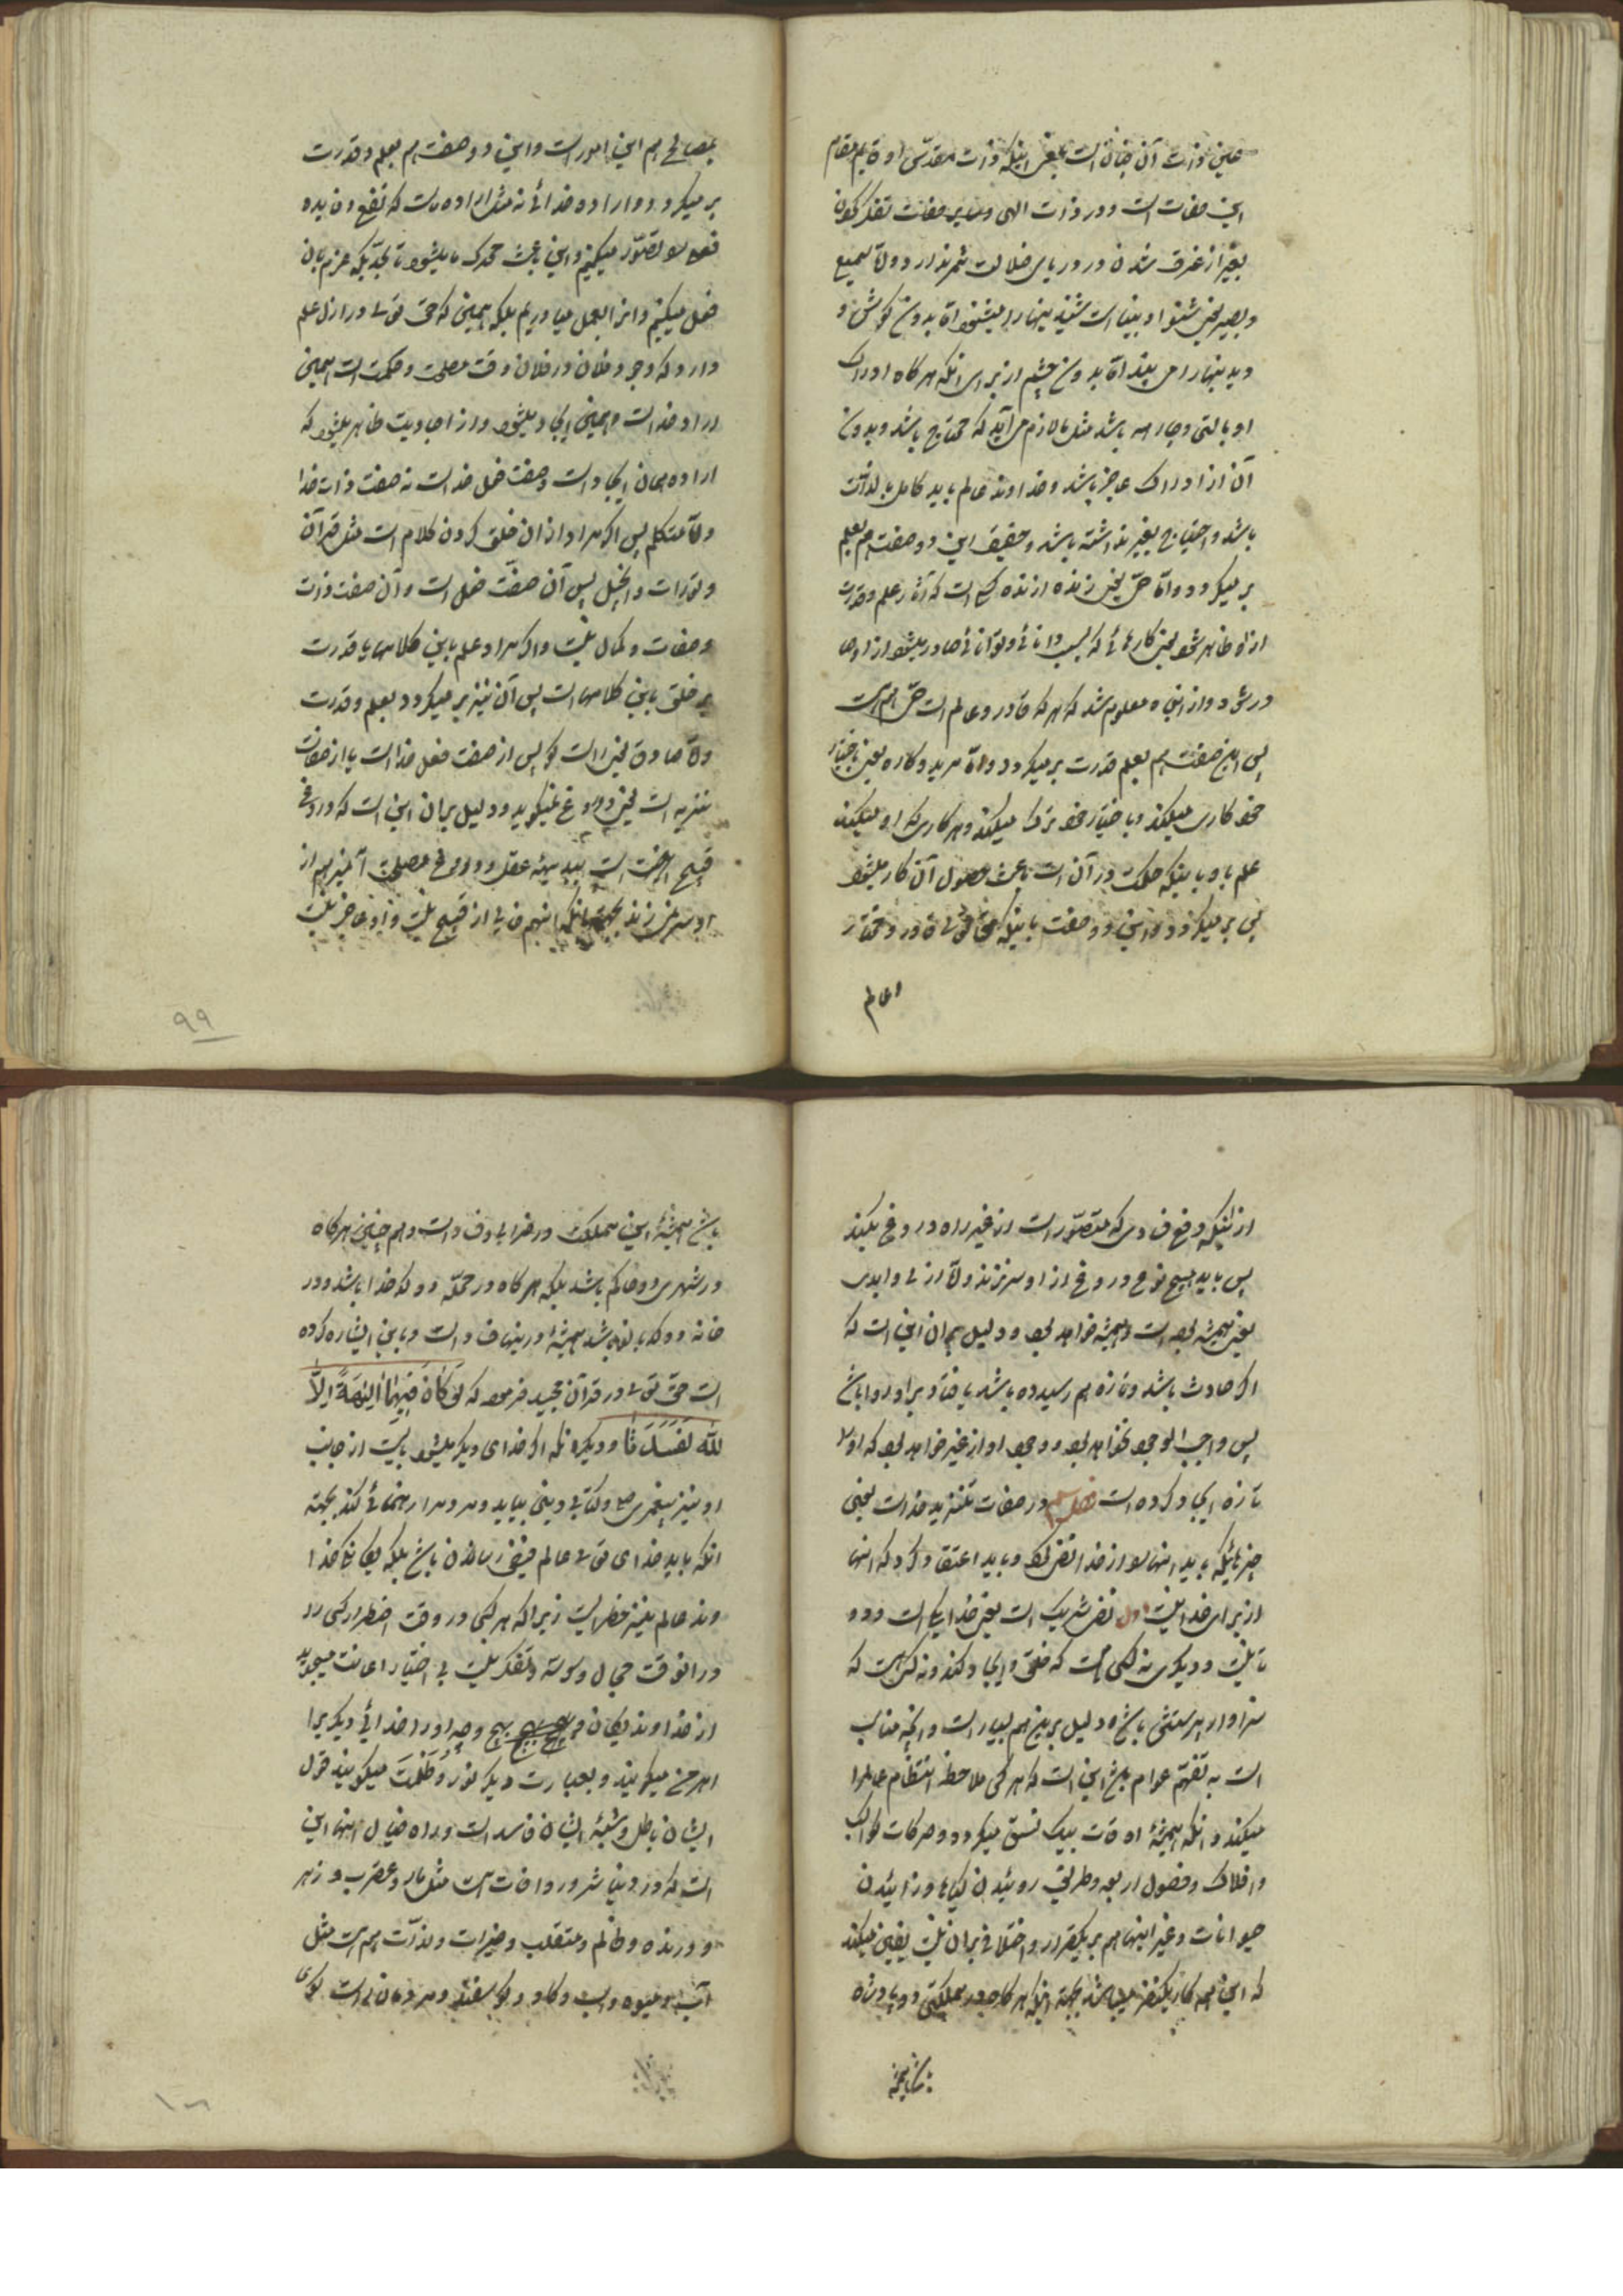 عین ذات آن چنان است یعنی اینکه ذات مقدس او قایم مقام
این صفات است و در ذات الهی و سایر صفات تفکر کردن
بغیر از غرق شدن در دریای ضلالت ثمر ندارد و اما سمیع
و بصیر یعنی شنوا و بینا است شنیدنیها را میشنود اما بدون گوش و
دیدنیها را می بیند اما بدون چشم از برای انکه هر گاه ادراک
او بالتی و جارحه باشد مثل ما لازم می آید که محتاج باشد و بدون
آن از ادراک عاجز باشد و خداوند عالم باید کامل بالذات
باشد و احتیاج بغیر نداشته باشد و حقیقت این دو صفت هم بعلم
بر میگردد و اما حی یعنی زنده از زنده کسی است که آثار علم و قدرت
از او ظاهر شود یعنی کارهائی که بسبب دانائی و توانائی صادر میشود از او صا
در شود و از اینجا معلوم شد که هر که قادر و عالم است حی هم هست
پس این صفت هم بعلم قدرت بر میگردد و اما مرید و کاره یعنی باختیار
خود کاری میکند و باختیار خود ترک میکند و هر کاری که او میکند
علم باو باینکه حکمت در آن است باعث حصول آن کار میشود
پس بر میگردد این دو صفت باینکه حق تعالی قادر و مختار
و عالم
بمصالح هم این امور است و این دو صفت هم بعلم و قدرت
بر میگردد و اراده خدائی نه مثل اراده ماست که نفع و فایده
فعل را تصور میکنیم و این باعث محرک ما میشود تا بحدیکه عزم بان
فعل میکنیم و انرا بعمل میاوریم بلکه همینی که حق تعالی در ازل علم
دارد که وجود فلان در فلان وقت مصلحت و حکمت است همین
اراده خداست و همین ایجاد میشود و از احادیث ظاهر میشود که
اراده همان ایجاد است و صفت فعل خداست نه صفت ذات خدا
و اما متکلم پس اگر مراد از ان خلق کردن کلام است مثل قرآن
و تورات و انجیل پس آن صفت فعل است و آن صفت ذات
و صفات و کمال نیست و اگر مراد علم باین کلامها یا قدرت
بر خلق باین کلامها است پس آن نیز بر میگردد بعلم و قدرت
و اما صادق یعنی راست گو پس از صفت فعل خداست یا از صفات
تنزیه است یعنی دروغ نمیگوید و دلیل بر ان این است که دروغ
قبیح است ببدیهه عقل و دروغ مصلحت آمیز هم از
او سر نمیزند بجهة انکه اینهم خالی از قبیح نیست و او عاجز نیست
۹۹
از اینکه دفع فسادی که متصور است از غیر راه دروغ بکند
پس باید هیچ نوع دروغ از او سر نزند و اما ازلی و ابدی
یعنی همیشه بوده است و همیشه خواهد بود و دلیل بر ان این است که
اگر حادث باشد و تازه بهم رسیده باشد یا فنا بر او روا باشد
پس واجب الوجود نخواهد بود و وجود او از غیر خواهد بود که او را
تازه ایجاد کرده است فصل سیم در صفات تنزیه خداست یعنی
چیزهائیکه باید انها را از خدا نفی کرد و باید اعتقاد کرد که انها
از برای خدا نیست اول نفی شریک است یعنی خدا یکی است و دو
تا نیست و دیگری نه کسی هست که خلق و ایجاد کند و نه کسی است که
سزاوار پرستش باشد و دلیل بر این هم بسیار است و انچه مناسب
است به تفهم عوام باشد این است که هر کس ملاحظه انتظام عالم را
میکند و انکه همیشه اوقات بیک نسق میگردد و حرکات کواکب
و افلاک و فصول اربعه و طریق روئیدن گیاه و زائیدن
حیوانات و غیر اینها هم بر یکقرار و اختلافی بر ان نیست یقین میکند
که این همه کار یکنفر میباشد بجهة اینکه هر گاه در مملکتی دو پادشاه
باشد همیشه
باشد همیشه این مملکت در خرابی و فساد است و هم چنین هر گاه
در شهری دو حاکم باشد بلکه هر گاه در محله دو کدخدا باشد و در
خانه دو کدبانو باشد همیشه در اینها فساد است و باین اشاره کرده
است حق تعالی در قرآن مجید فرموده که لَوْ کَانَ فِیهِمَا آلِهَةٌ اِلَّا
للّٰه لَفَسَدَتا و دیگر انکه اگر خدای دیگر میشد بایست از جانب
او نیز پیغمبری و کتابی و دینی بیاید و مردم را رهنمائی کند بجهة
انکه باید خدای تعالی عالم فیض رسان باشد بلکه یگانگی خدا
وند عالم نیز فطریست زیرا که هر کسی در وقت اضطرار کسی را
در انوقت مجال وسوسه و تفکر نیست بی اختیار اعانت میجوید
از خداوند یگان و بهیچ وجه او را خدائی دیگر برا
اهرمن میگویند و بعبارت دیگر نور و ظلمت میگویند قول
ایشان باطل و شبهه ایشان فاسد است و ماده خیال اینها این
است که در دنیا شرور و افات هست مثل مار و عقرب و زهر
و درنده و ظالم و متقلب و خیرات و لذات هم هست مثل
آب و میوه و اسب و گاو و گوسفند و مردمان راست گوی
۱۰۰